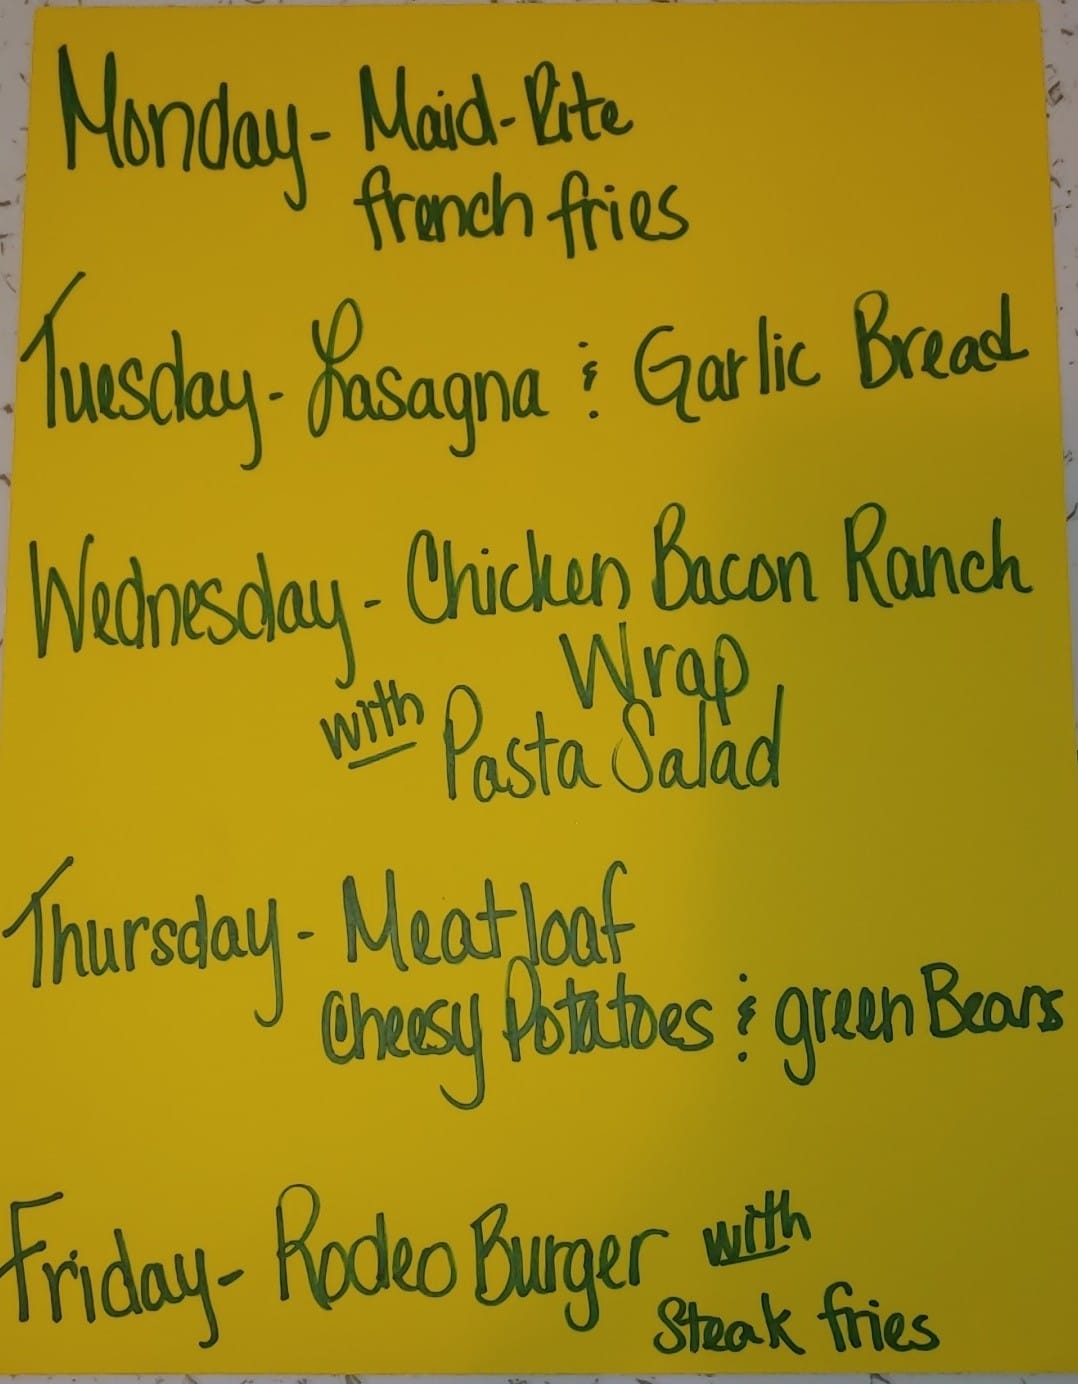 Monday - Maid-Rite
french fries
Tuesday - Lasagna & Garlic Bread
Wednesday - Chicken Bacon Ranch
Wrap
with Pasta Salad
Thursday - Meatloaf
Cheesy Potatoes & green Beans
Friday - Rodeo Burger with
Steak fries